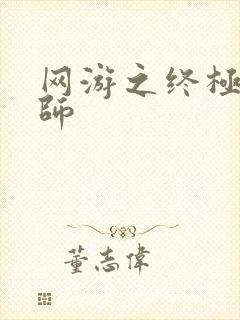 网游之终極
師
董志偉